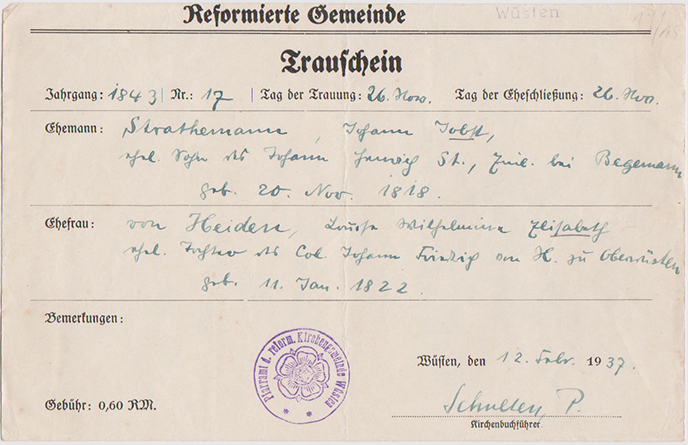 Reformierte Gemeinde Wüsten
Trauschein
Jahrgang: 1843 Nr.: 17 Tag der Trauung: 26. Nov. Tag der Eheschließung: 26. Nov.
Ehemann: Strathemann, Johann Jobst,
ehel. Sohn des Johann Henrich St., Einl. bei Begemann
geb. 20. Nov. 1818.
Ehefrau: von Heiden, Louise Wilhelmine Elisabeth
ehel. Tochter des Col. Johann Friedrich von H. zu Oberwüsten
geb. 11. Jan. 1822.
Bemerkungen:
Pfarramt d. reform. Kirchengemeinde Wüsten
Wüsten, den 12. Febr. 1937.
Gebühr: 0,60 RM.
Schulten, P.
Kirchenbuchführer